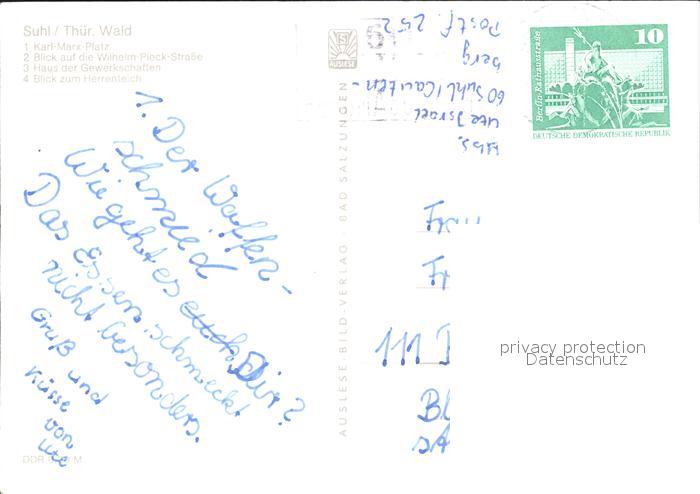 Suhl / Thür. Wald
1 Karl-Marx-Platz
2 Blick auf die Wilhelm-Pieck-Straße
3 Haus der Gewerkschaften
4 Blick zum Herrenteich
1. Der Waffen-
schmied
Wie geht es euch Dir?
Das Essen schmeckt
nicht besonders.
Gruß und
Küsse von
Ute
DDR M
AUSLESE-BILD-VERLAG - BAD SALZUNGEN
AUSLESE
Abs.
Ute Israel
60 Suhl/Lauten-
berg
Postf. 252
10
Berlin-Rathausstraße
DEUTSCHE DEMOKRATISCHE REPUBLIK
Fr
111
Bl
privacy protection
Datenschutz